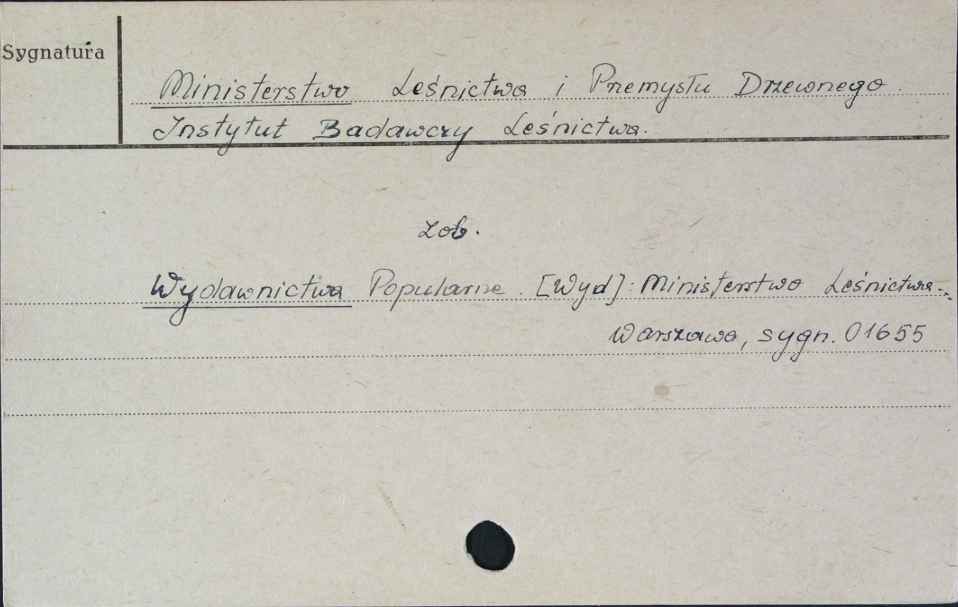 Sygnatura
Ministerstwo Leśnictwa i Przemysłu Drzewnego.
Instytut Badawczy Leśnictwa.
Zob.
Wydawnictwa Popularne. [Wyd]: Ministerstwo Leśnictwa...
Warszawa, sygn. 01655